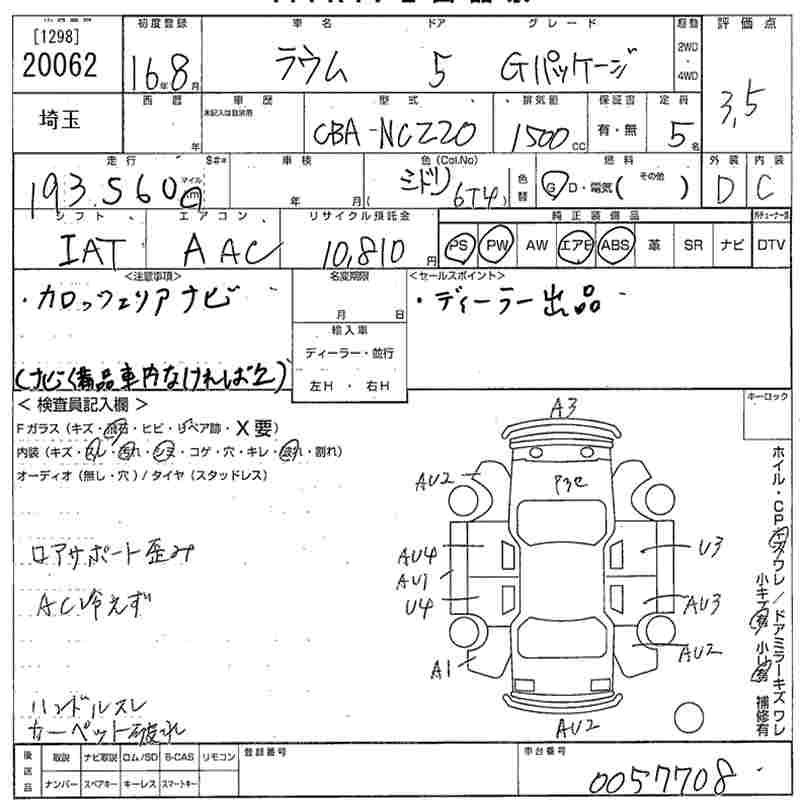 [1298]
20062
初度登録
16年8月
車名
ラウム
ドア
5
グレード
Gパッケージ
駆動
2WD
4WD
評価点
3,5
埼玉
西暦
年
車歴
未記入は自家用
型式
CBA-NCZ20
排気量
1500CC
保証書
有・無
定員
5名
走行
193560
マイル
km
S#*
車検
年 月
色(Col.No)
ミドリ
(6T4)
色替
燃料
G D・電気( その他 )
外装
D
内装
C
シフト
IAT
エアコン
AAC
リサイクル預託金
10,810円
純正装備品
PS PW AW エアB ABS 革 SR ナビ
DTV
<注意事項>
・カロッツェリアナビ
(ナビ・備品車内なければ欠)
名変期限
月 日
輸入車
ディーラー・並行
左H ・ 右H
<セールスポイント>
・ディーラー出品
<検査員記入欄>
Fガラス(キズ・飛石・ヒビ・リペア跡・X要)
内装(キズ・スレ・汚れ・シミ・コゲ・穴・キレ・破れ・割れ)
オーディオ(無し・穴)/タイヤ(スタッドレス)
ロアサポート歪み
AC冷えず
ハンドルスレ
カーペット破れ
キーロック
A3
AU2
P3e
AU4
AU1
U4
A1
U3
AU3
AU2
AU2
ホイル・CPキズワレ/ドアミラーキズワレ
補修有
後送品
取説 ナビ取説 ロム/SD B-CAS リモコン
ナンバー スペアキー キーレス スマートキー
登録番号
車台番号
0057708